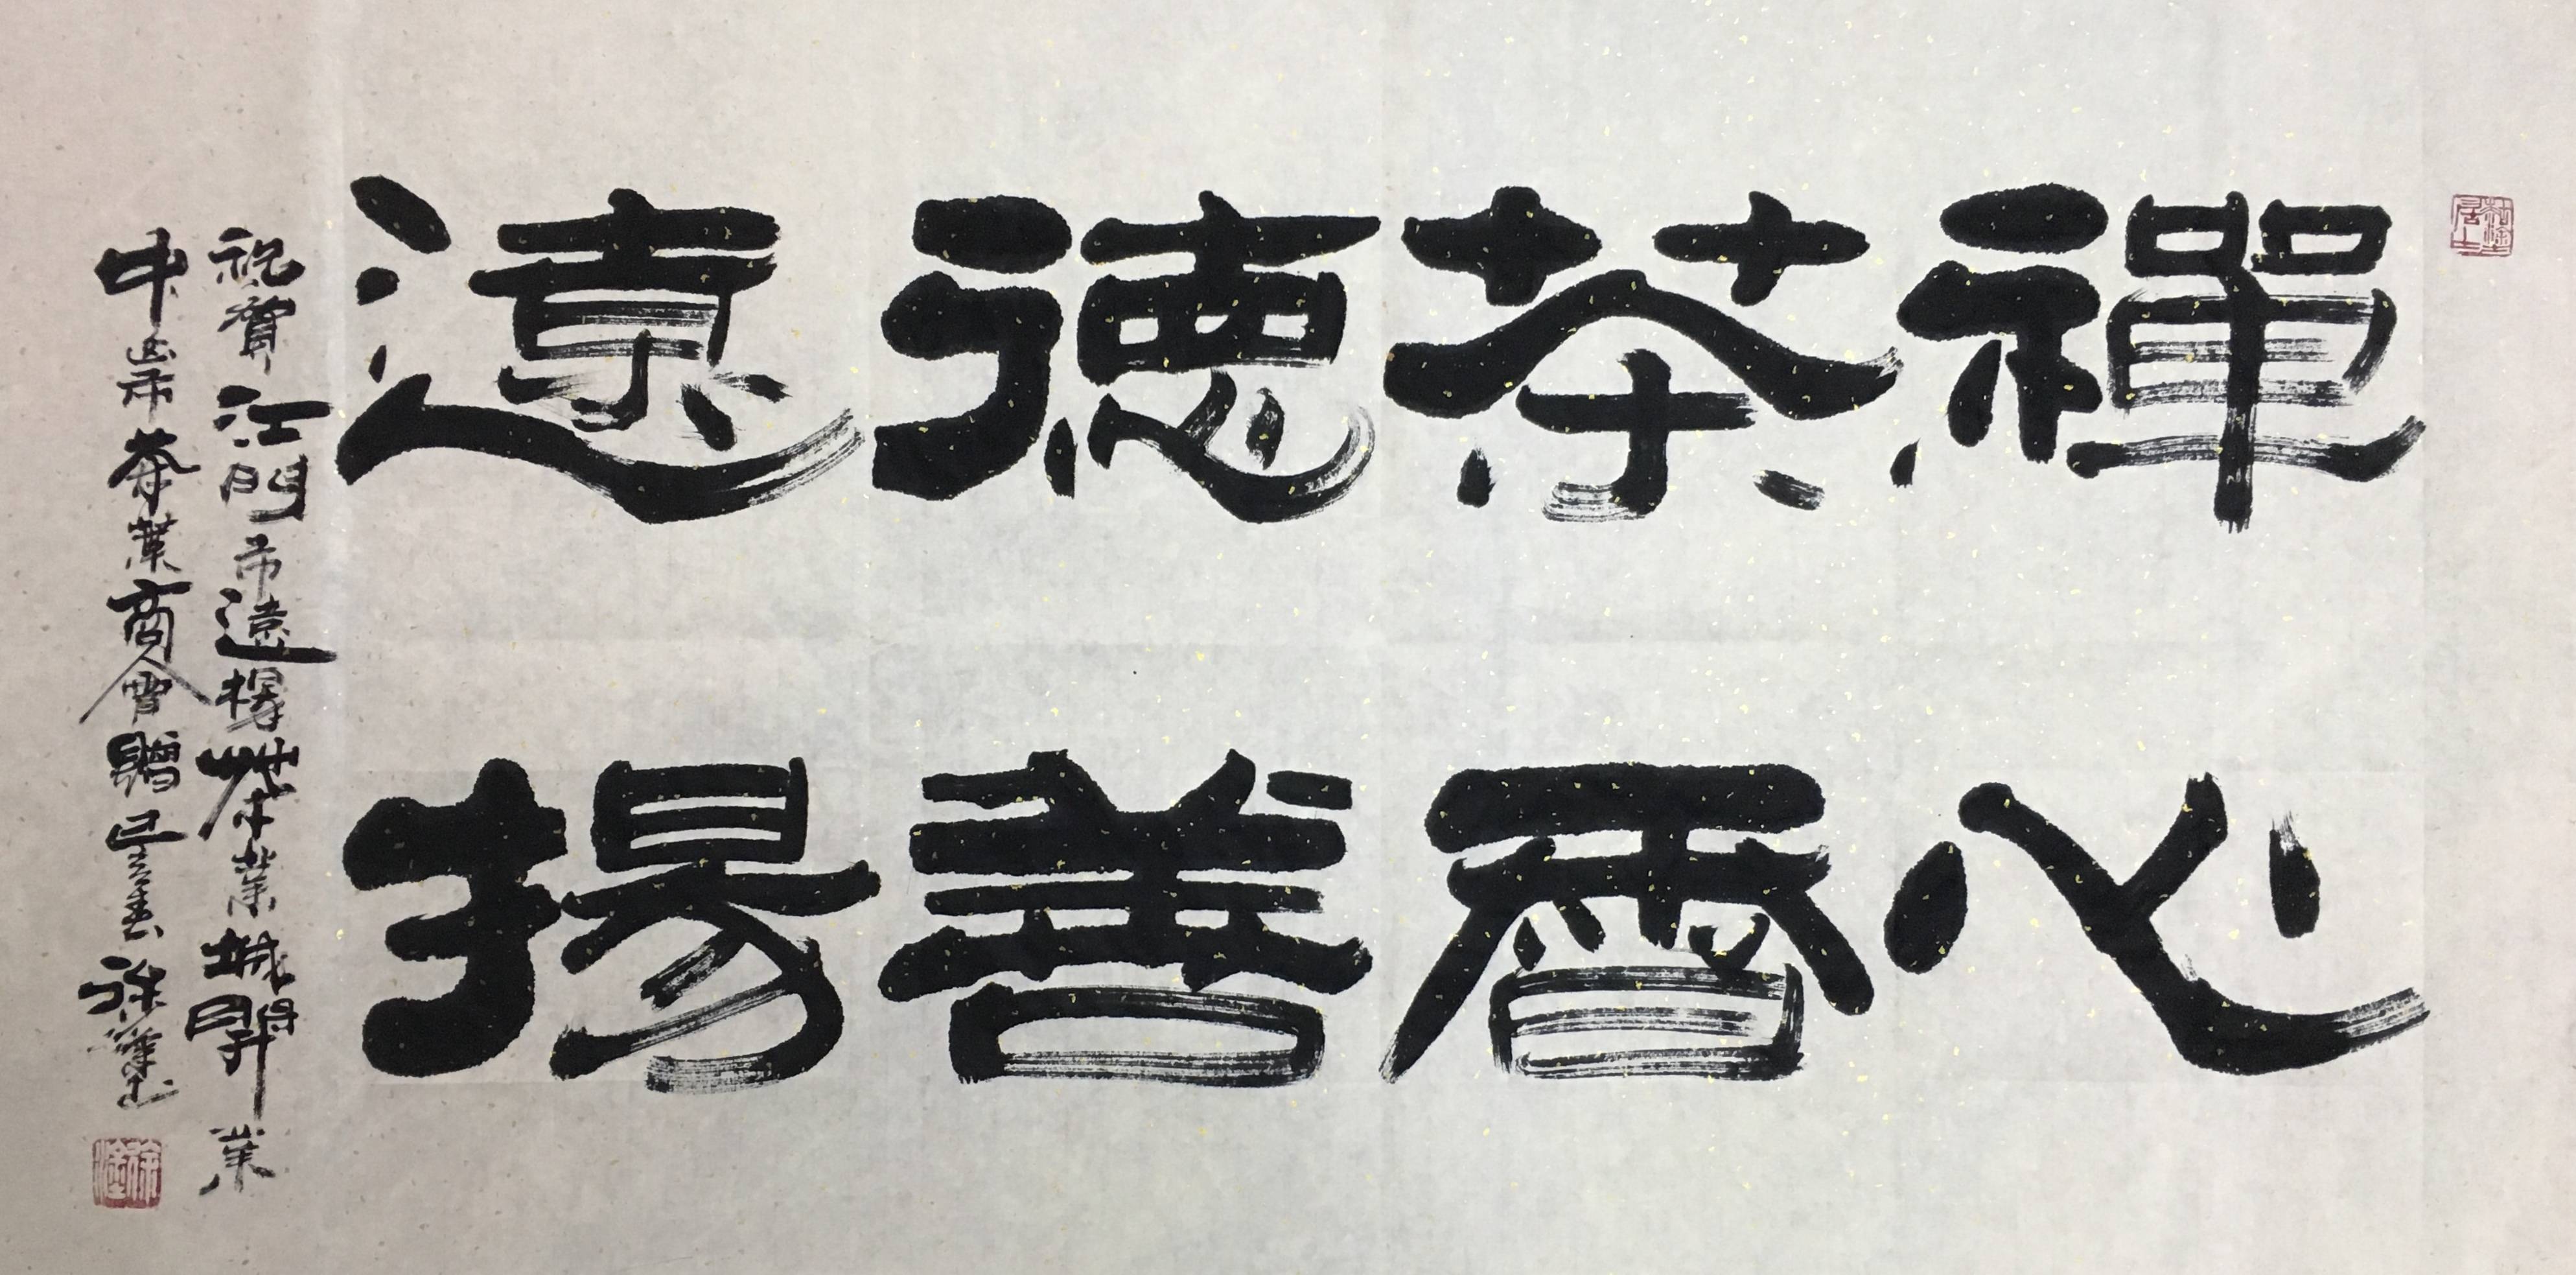 禪心
茶香
德善
遠揚
祝賀江門市遠揚茶業城開業
中山市茶業商會贈己亥春徐